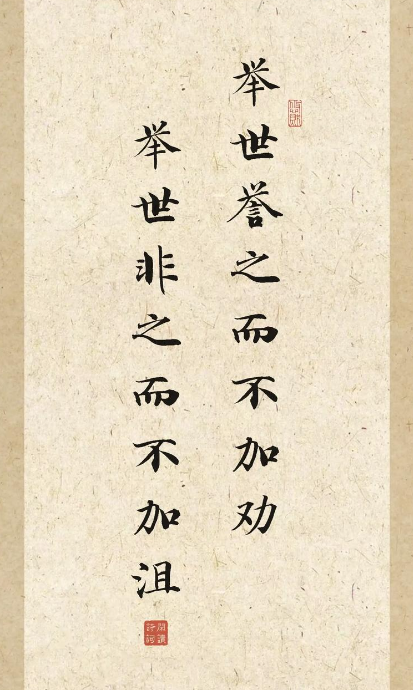 举世誉之而不加劝
举世非之而不加沮